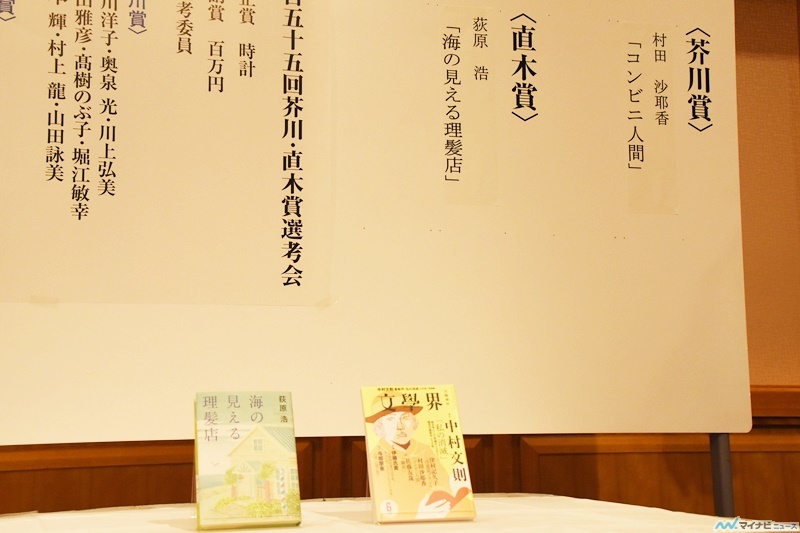 〈芥川賞〉
村田 沙耶香
「コンビニ人間」
〈直木賞〉
荻原 浩
「海の見える理髪店」
百五十五回芥川・直木賞選考会
正賞 時計
副賞 百万円
考委員
川賞〉
川洋子・奥泉 光・川上弘美
田雅彦・髙樹のぶ子・堀江敏幸
輝・村上 龍・山田詠美
賞〉
荻原 浩
海の
見える
理髪店
文學界
中村文則
「私の消滅」
6
マイナビニュース